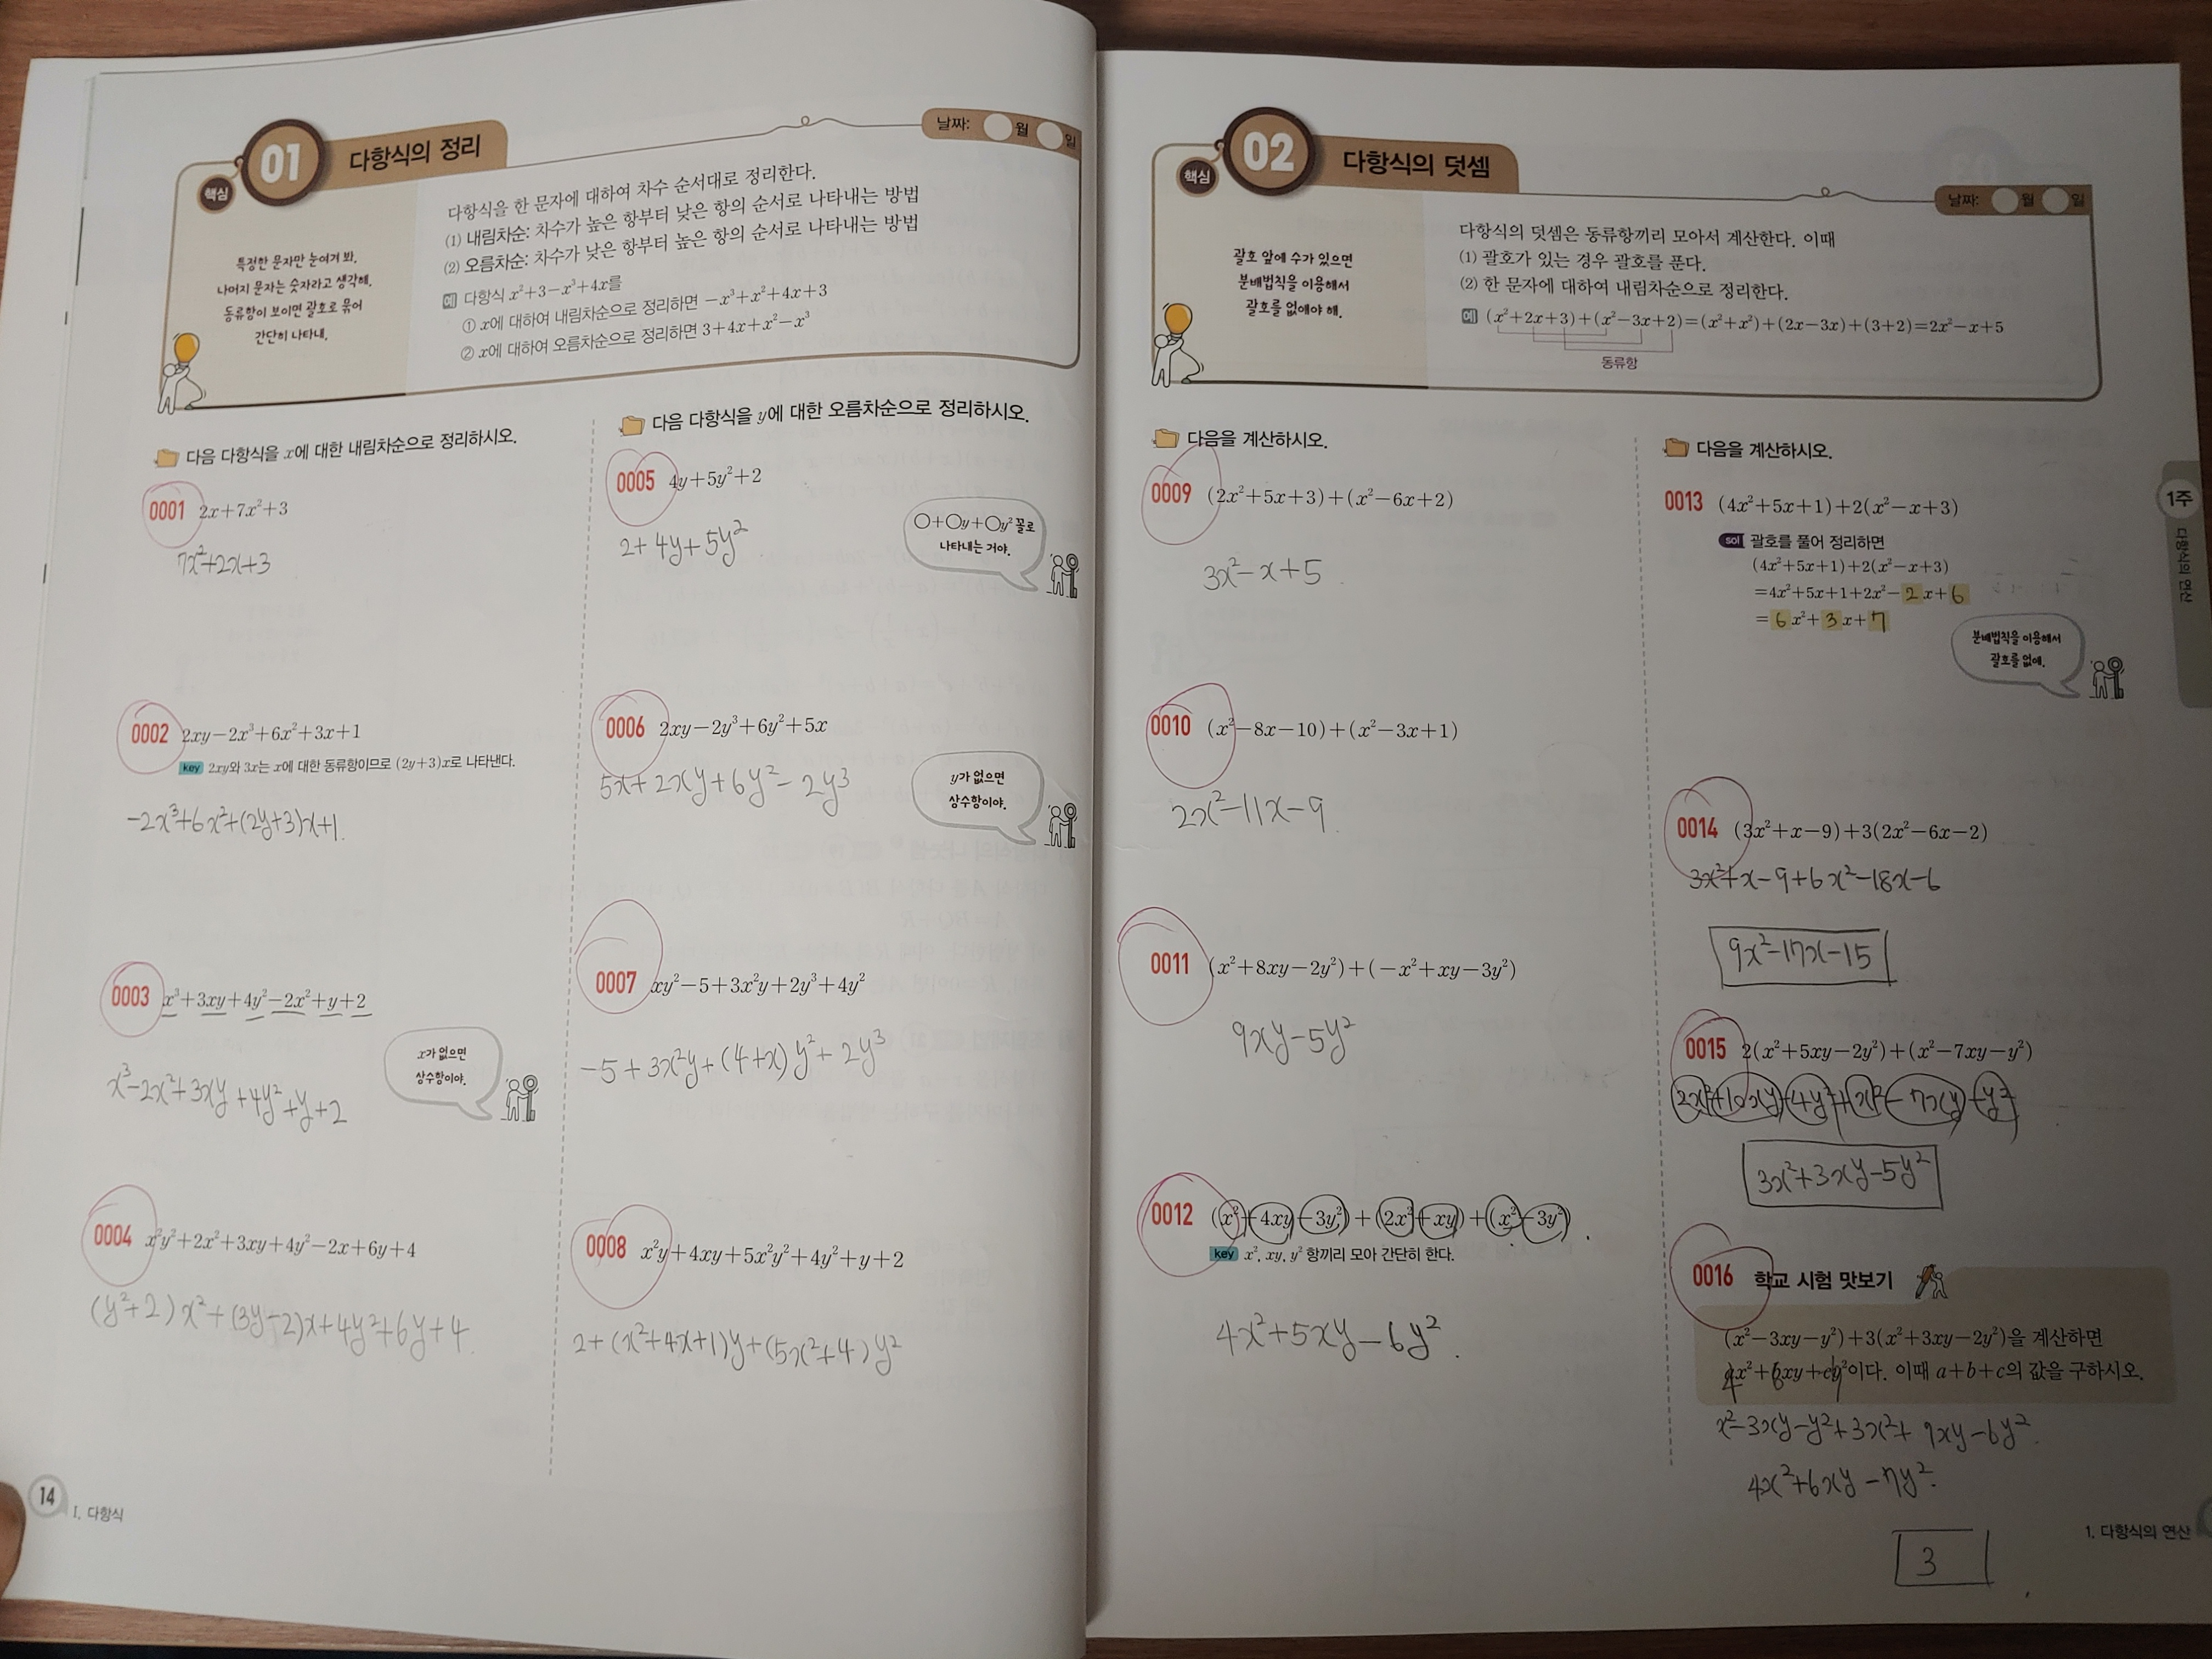 핵심
01
다항식의 정리
날짜: 월 일
특정한 문자만 눈여겨 봐.
나머지 문자는 숫자라고 생각해.
동류항이 보이면 괄호로 묶어
간단히 나타내.
다항식을 한 문자에 대하여 차수 순서대로 정리한다.
(1) 내림차순: 차수가 높은 항부터 낮은 항의 순서로 나타내는 방법
(2) 오름차순: 차수가 낮은 항부터 높은 항의 순서로 나타내는 방법
예 다항식 x²+3−x³+4x를
① x에 대하여 내림차순으로 정리하면 −x³+x²+4x+3
② x에 대하여 오름차순으로 정리하면 3+4x+x²−x³
다음 다항식을 x에 대한 내림차순으로 정리하시오.
0001 2x+7x²+3
7x²+2x+3
0002 2xy−2x³+6x²+3x+1
key 2xy와 3x는 x에 대한 동류항이므로 (2y+3)x로 나타낸다.
-2x³+6x²+(2y+3)x+1
0003 x³+3xy+4y²−2x²+y+2
x가 없으면
상수항이야.
x³-2x²+3xy+4y²+y+2
0004 x²y²+2x²+3xy+4y²−2x+6y+4
(y²+2)x²+(3y-2)x+4y²+6y+4
다음 다항식을 y에 대한 오름차순으로 정리하시오.
0005 4y+5y²+2
○+○y+○y² 꼴로
나타내는 거야.
2+4y+5y²
0006 2xy−2y³+6y²+5x
y가 없으면
상수항이야.
5x+2xy+6y²-2y³
0007 xy²−5+3x²y+2y³+4y²
-5+3x²y+(4+x)y²+2y³
0008 x²y+4xy+5x²y²+4y²+y+2
2+(x²+4x+1)y+(5x²+4)y²
14 I. 다항식
핵심
02
다항식의 덧셈
날짜: 월 일
괄호 앞에 수가 있으면
분배법칙을 이용해서
괄호를 없애야 해.
다항식의 덧셈은 동류항끼리 모아서 계산한다. 이때
(1) 괄호가 있는 경우 괄호를 푼다.
(2) 한 문자에 대하여 내림차순으로 정리한다.
예 (x²+2x+3)+(x²−3x+2)=(x²+x²)+(2x−3x)+(3+2)=2x²−x+5
동류항
다음을 계산하시오.
0009 (2x²+5x+3)+(x²−6x+2)
3x²-x+5
0010 (x²−8x−10)+(x²−3x+1)
2x²-11x-9
0011 (x²+8xy−2y²)+(−x²+xy−3y²)
9xy-5y²
0012 (x²+4xy−3y²)+(2x²+xy)+(x²−3y²)
key x², xy, y² 항끼리 모아 간단히 한다.
4x²+5xy-6y²
다음을 계산하시오.
0013 (4x²+5x+1)+2(x²−x+3)
sol 괄호를 풀어 정리하면
(4x²+5x+1)+2(x²−x+3)
=4x²+5x+1+2x²−2x+6
=6x²+3x+7
분배법칙을 이용해서
괄호를 없애.
0014 (3x²+x−9)+3(2x²−6x−2)
3x²+x-9+6x²-18x-6
9x²-17x-15
0015 2(x²+5xy−2y²)+(x²−7xy−y²)
2x²+10xy-4y²+x²-7xy-y²
3x²+3xy-5y²
0016 학교 시험 맛보기
(x²−3xy−y²)+3(x²+3xy−2y²)을 계산하면
ax²+bxy+cy²이다. 이때 a+b+c의 값을 구하시오.
x²-3xy-y²+3x²+9xy-6y²
4x²+6xy-7y²
3
1. 다항식의 연산
1주
다항식의 연산